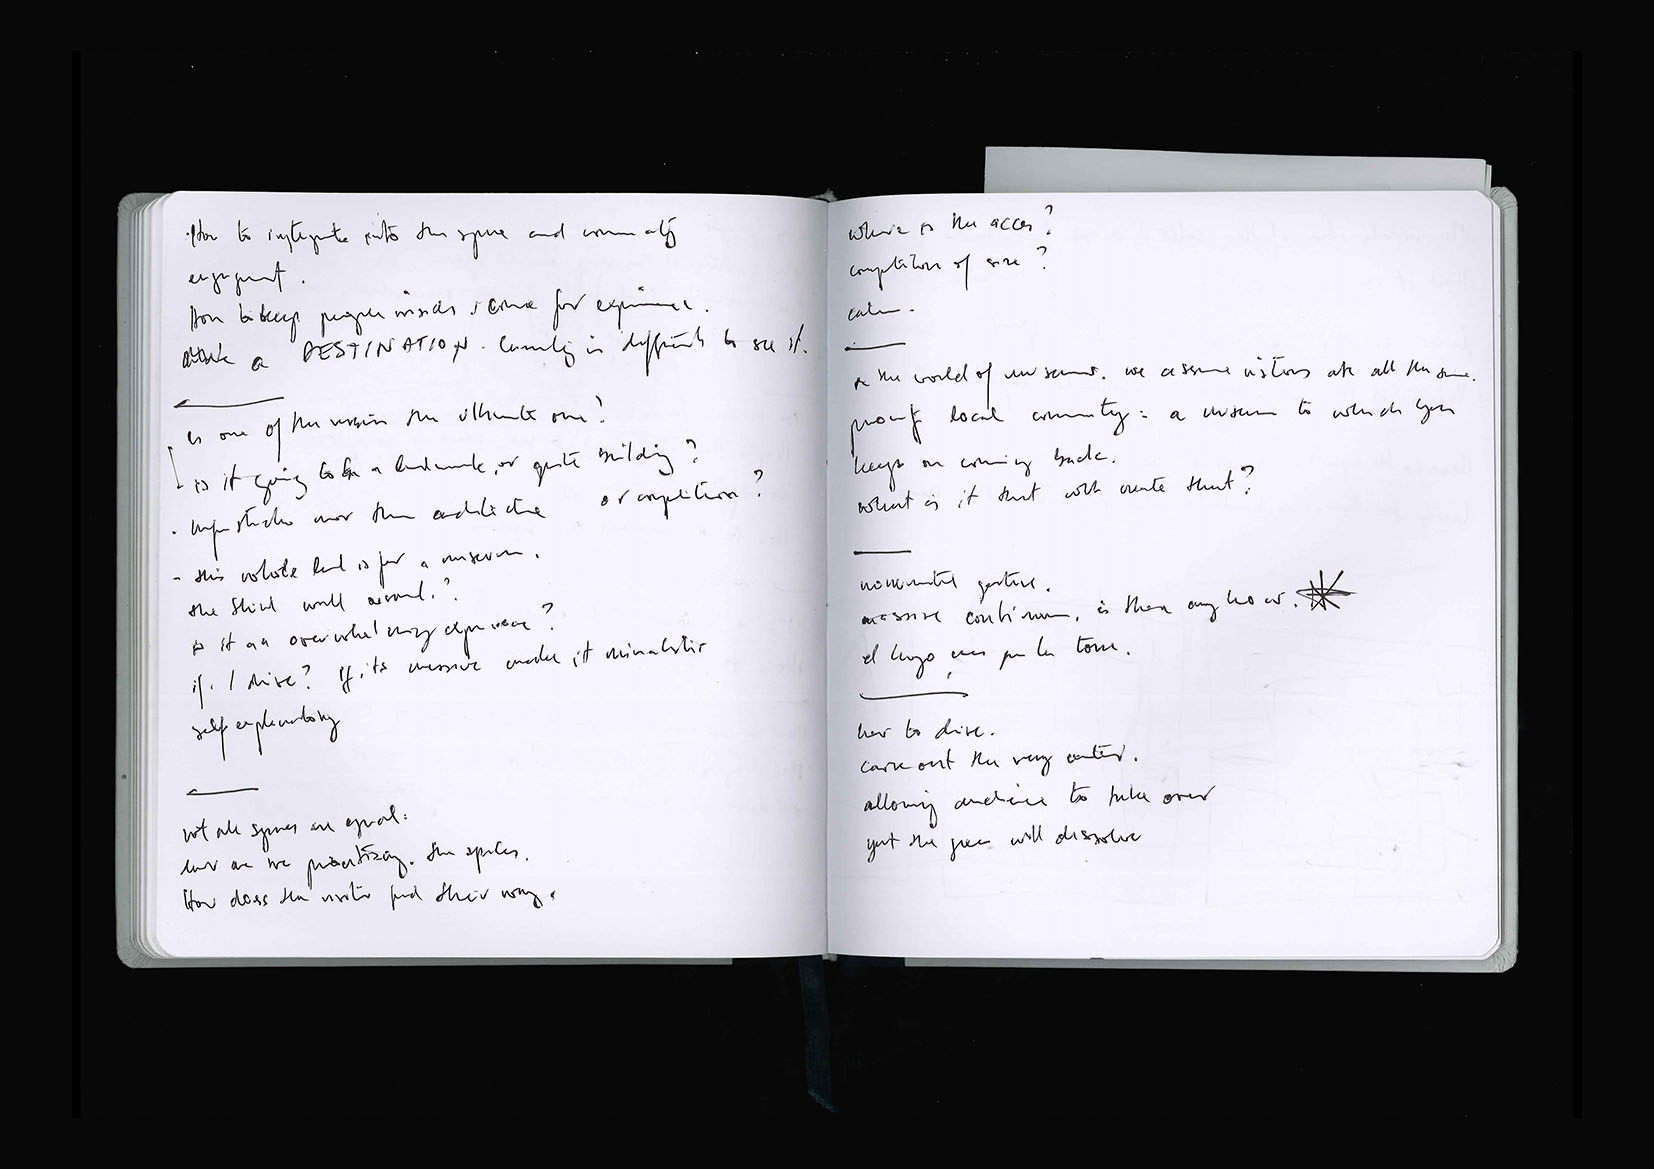 How to integrate into the space and community
engagement.
How to keep people inside, come for experience.
Make a DESTINATION. Currently is difficult to see it.
is one of the the ultimate one?
is it going to be a landmark, or quiet building?
or competition?
this whole land is for a museum.
the wall around?
is it an overwhelming experience?
if I drive? If its massive make it minimalistic
self explanatory
not all spaces are equal:
how are we prioritizing the spaces.
How does the visitor find their way.
where is the acces?
competition of size?
calm.
in the world of museums. we assume visitors are all the same.
local community: a museum to which you
keep on coming back.
what is it that will create that?
monumental gesture.
massive continuum, is there any
el por la torre.
how to
carve out the very center.
allowing audience to take over
yet the will dissolve